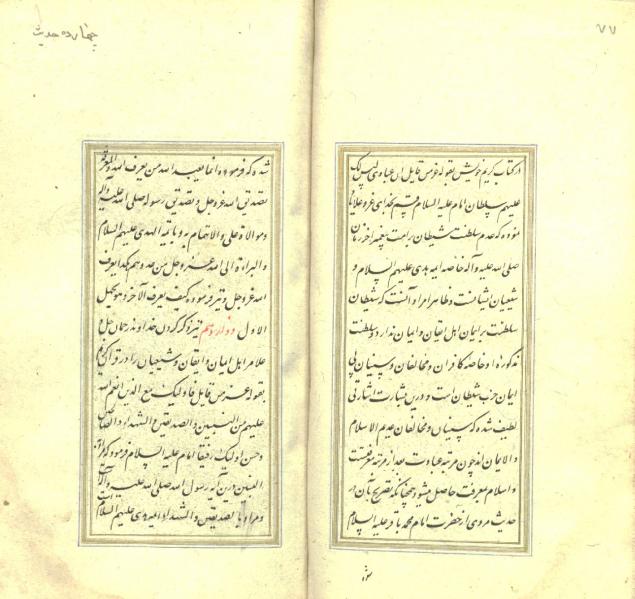 ۷۷
در کتاب کریم خویش بقوله عز من قایل ان عبادی لیس لک
علیهم سلطان امام علیه السلام قسم بخدای عز و علا یاد
نموده که عدم سلطنت شیطان بر امت پیغمبر آخر زمان
صلی الله علیه و آله خاصه ایمه هدی علیهم السلام و
شیعیان ایشانست و ظاهرا مراد آنست که شیطان
سلطنت بر ایمان اهل ایقان و ایمان ندارد و سلطنت
مذکوره او خاصه کافران و مخالفان و سنیان بی
ایمان حزب شیطان است و درین بشارت اشارتی
لطیف شده که سنیان و مخالفان عدیم الاسلام
والایمان اند چون مرتبه عبادت بعد از مرتبه معرفتست
و اسلام معرفت حاصل میشود چنانکه تصریح بآن در
حدیث مروی از حضرت امام محمد باقر علیه السلام
شده
چهارده حدیث
شده که فرموده انما یعبد الله من یعرف الله و المعرفة
تصدیق الله عز و جل و تصدیق رسوله صلی الله علیه و آله
و موالاة علی و الایتمام به و بایمة الهدی علیهم السلام
و البراءة الی الله عز و جل من عدوهم هکذا یعرف
الله عز و جل و نیز فرموده کیف یعرف الآخر و هو یجهل
الاول دوازدهم نیز ذکر کردن خداوند رحمان جل و
علا مر اهل ایمان و ایقان و شیعیان را در قرآن کریم
بقوله عز من قایل فاولئک مع الذین انعم الله
علیهم من النبیین و الصدیقین و الشهداء و الصالحین
و حسن اولئک رفیقا امام علیه السلام فرموده که مراد از
النبیین درین آیه رسول الله صلی الله علیه و آله است
و مراد بالصدیقین و الشهداء ایمه هدی علیهم السلام